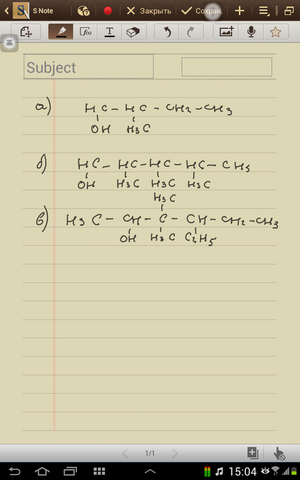 S Note
Закрыть
Сохран
Subject
а) HC – HC – CH2 – CH3
OH H3C
б) HC – HC – HC – HC – CH3
OH H3C H3C H3C
H3C
в) H3C – CH – C – CH – CH2 – CH3
OH H3C C2H5
1/1
15:04